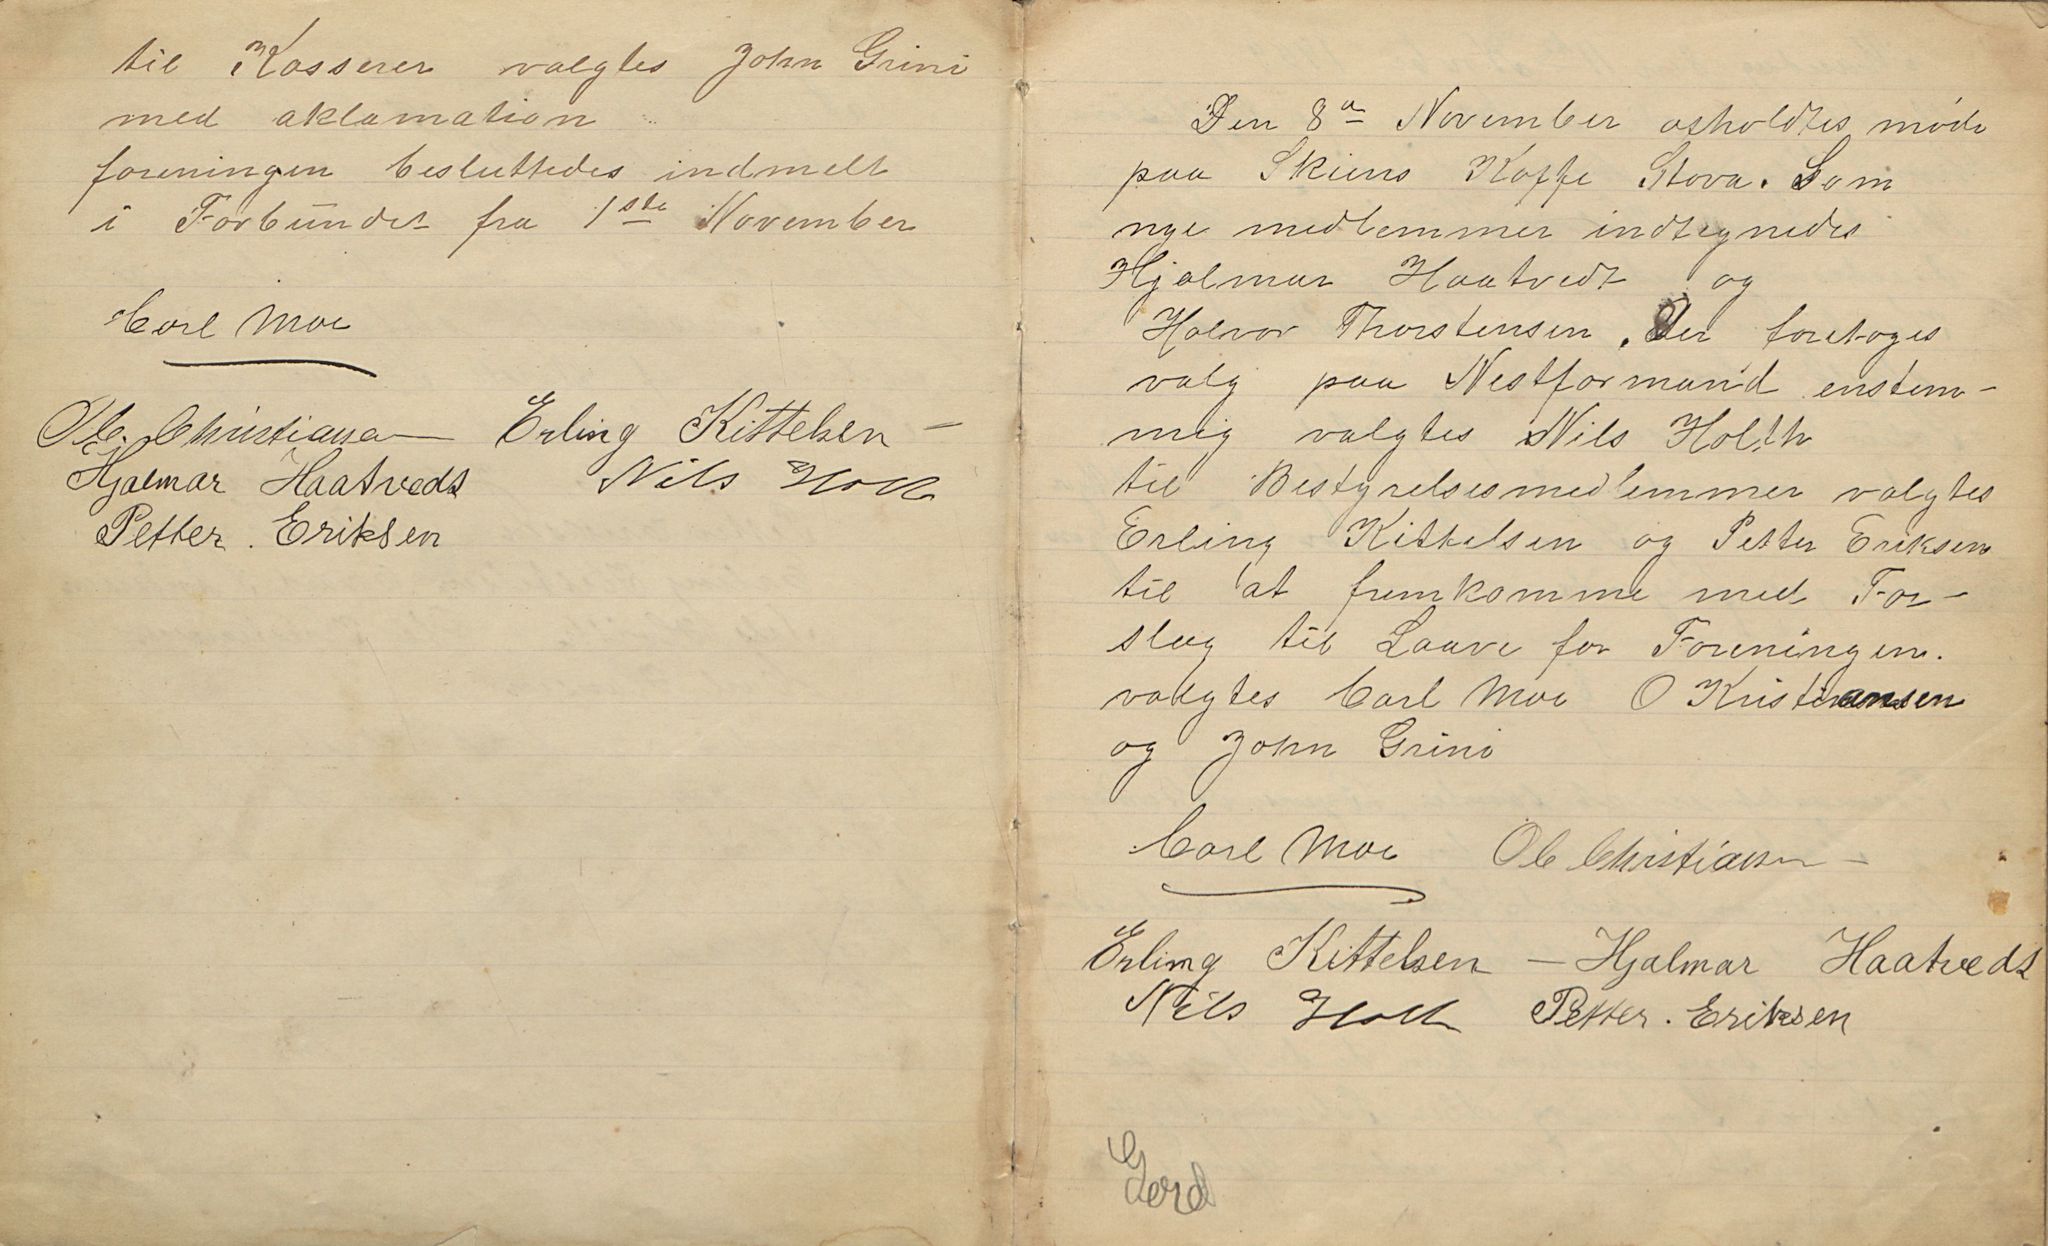 til Kasserer valgtes John Grini
med aklamation
foreningen besluttedes indmelt
i Forbundet fra 1ste November
Carl Moe
Ole Christiansen Erling Kittelsen
Hjalmar Haatvedt Nils Holth
Petter. Eriksen
Den 8de November afholdtes møde
paa Skiens Kaffe Stova. Som
nye medlemmer indtegnedes
Hjalmar Haatvedt og
Halvor Thorstensen. Der foretoges
valg paa Nestformand enstem-
mig valgtes Nils Holth
til Bestyrelsesmedlemmer valgtes
Erling Kittelsen og Petter Eriksen
til at fremkomme med For-
slag til Laave for Foreningen.
valgtes Carl Moe O Kristiansen
og John Grini
Carl Moe Ole Christiansen
Erling Kittelsen - Hjalmar Haatvedt
Nils Holth Petter. Eriksen
Gerd